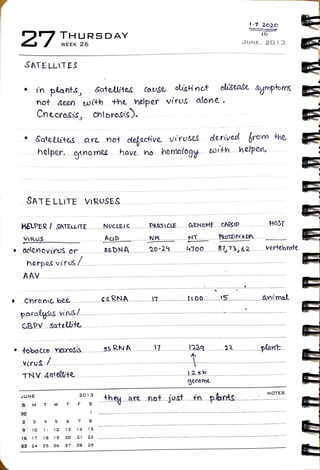 1-7-2020
27 THURSDAY
WEEK 26
JUNE, 2013
SATELLITES
• in plants, satellites cause distinct disease symptoms
not seen with the helper virus alone.
(necrosis, chlorosis).
• Satellites are not defective viruses derived from the
helper. genomes have no homology with helper.
SATELLITE VIRUSES
HELPER / SATELLITE NUCLEIC PARTICLE GENOME CAPSID HOST
VIRUS ACID NM NT PROTEIN KDA
• adenovirus or ssDNA 20-24 4700 87,73,62 vertebrate
herpes virus /
AAV
• Chronic bee ssRNA 17 1100 15 animal
paralysis virus/
CBPV satellite
• tobacco necrosis ssRNA 17 1239 22 plant
virus / ↑
TNV satellite 1.2 kb
genome
JUNE 2013
they are not just in plants
NOTES
S M T W T F S
30 1
2 3 4 5 6 7 8
9 10 11 12 13 14 15
16 17 18 19 20 21 22
23 24 25 26 27 28 29